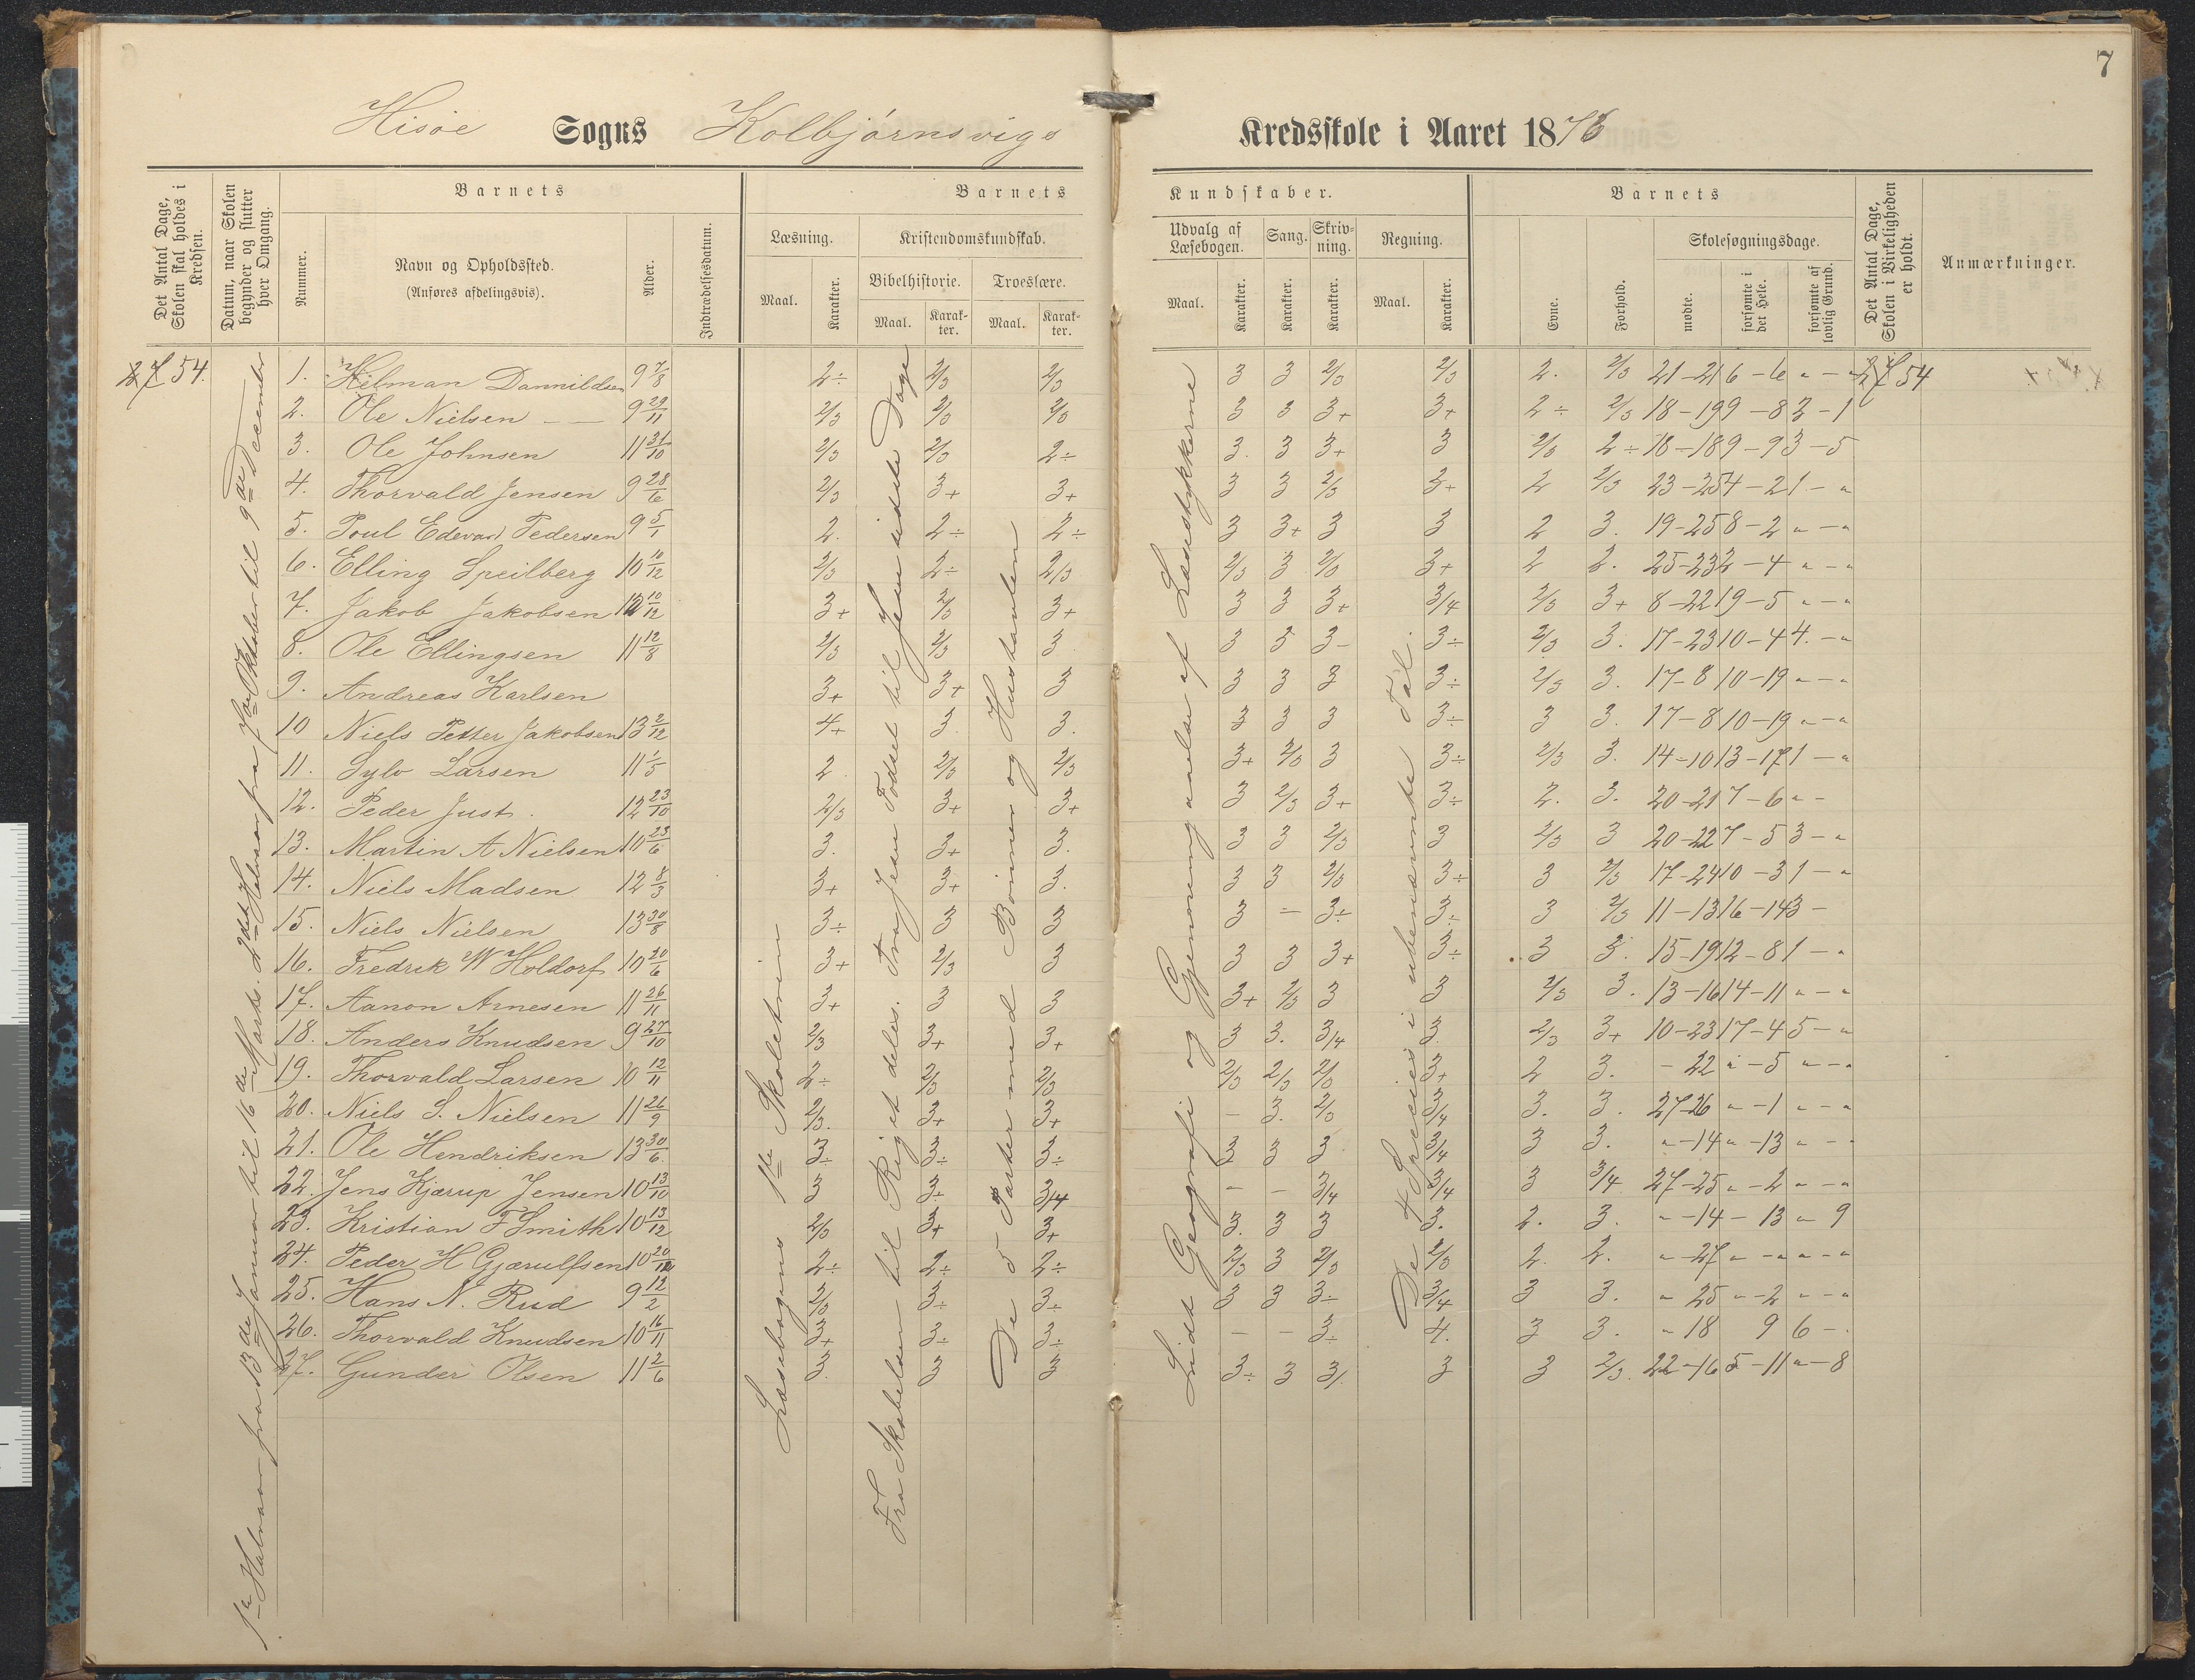 7
Hisøe Sogns Kolbjørnsvigs Kredsskole i Aaret 1876
Det Antal Dage, Skolen skal holdes i Kredsen.
Datum, naar Skolen begynder og slutter hver Omgang.
Barnets
Nummer.
Navn og Opholdssted.
(Anføres afdelingsvis).
Alder.
Indtrædelsesdatum.
Barnets Kundskaber.
Læsning.
Maal. Karakter.
Kristendomskundskab.
Bibelhistorie. Troeslære.
Maal. Karakter. Maal. Karakter.
Udvalg af Læsebogen. Sang. Skrivning. Regning.
Maal. Karakter. Karakter. Karakter. Maal. Karakter.
Barnets
Evne. Forhold.
Skolesøgningsdage.
mødte. forsømte i det Hele. forsømte af lovlig Grund.
Det Antal Dage, Skolen i Virkeligheden er holdt.
Anmærkninger.
1ste Halvaar fra 13de Januar til 16de Marts. 2det Halvaar fra Oktober til 9de December
Læsebogens 1ste Skoletrin
Fra Skabelsen til Riget deles. Fra Jesu Fødsel til Jesu sidste Dage
De 5 Parter med Bønner og Hustavlen
Lidt Geografi og Gjennemgaaelse af Læsestykkerne
De 4 Specier i ubenævnte Tal.
54. 1. Hilman Dannildsen 9 7/8 2÷ 2/3 2/3 3 3 2/3 2/3 2. 2/3 21-21 6-6 „-„ 54
2. Ole Nielsen 9 29/11 2/3 2/3 2/3 3 3 3+ 3+ 2÷ 2/3 18-19 9-8 3-1
3. Ole Johnsen 11 31/10 2/3 2/3 2÷ 3. 3 3+ 3 2/3 2÷ 18-18 9-9 3-5
4. Thorvald Jensen 9 28/6 2/3 3+ 3+ 3 3 2/3 3+ 2 2/3 23-25 4-2 1-„
5. Poul Edevard Pedersen 9 5/1 2. 2÷ 2÷ 3 3+ 3 3 2 3. 19-25 8-2 „-„
6. Elling Speilberg 10 10/12 2/3 2÷ 2/3 2/3 3 2/3 3+ 2 2. 25-23 2-4 „-„
7. Jakob Jakobsen 12 10/12 3+ 2/3 3+ 3 3 3+ 3/4 2/3 3+ 8-22 19-5 „-„
8. Ole Ellingsen 11 12/8 2/3 2/3 3 3 3 3- 3÷ 2/3 3. 17-23 10-4 4.-„
9. Andreas Karlsen 3+ 3+ 3 3 3 3 3÷ 2/3 3. 17-8 10-19 „-„
10 Niels Petter Jakobsen 13 2/12 4+ 3. 3. 3 3 3 3÷ 3 3. 17-8 10-19 „-„
11. Sylv Larsen 11 1/5 2 2/3 2/3 3+ 2/3 3 3÷ 2/3 3. 14-10 13-17 1-„
12. Peder Just. 12 23/10 2/3 3+ 3+ 3 2/3 3+ 3÷ 2. 3. 20-21 7-6 „-
13. Martin A Nielsen 10 23/6 3. 3+ 3. 3 3 2/3 3 2/3 3 20-22 7-5 3-„
14. Niels Madsen 12 8/3 3+ 3+ 3. 3 3 2/3 3÷ 3 2/3 17-24 10-3 1-„
15. Niels Nielsen 13 30/8 3÷ 3 3 3 - 3÷ 3÷ 3 2/3 11-13 16-14 3-
16. Fredrik W Holdorf 10 20/6 3+ 2/3 3 3 3 3+ 3÷ 3 3. 15-19 12-8 1-„
17. Aanon Arnesen 11 26/11 3+ 3 3 3+ 2/3 3 3 2/3 3. 13-16 14-11 „-„
18. Anders Knudsen 9 27/10 2/3 3+ 3+ 3 3. 3/4 3. 2/3 3+ 10-23 17-4 5-„
19. Thorvald Larsen 10 12/11 2÷ 2/3 2/3 2/3 2/3 2/3 3+ 2 3. -22 „-5 „-„
20. Niels S. Nielsen 11 26/9 2/3. 3+ 3+ - 3. 2/3 3/4 3. 3. 27-26 „-1 „-„
21. Ole Hendriksen 13 30/6 3÷ 3÷ 3÷ 3 3 3 3/4 3 3. „-14 „-13 „-
22. Jens Kjærup Jensen 10 13/10 3 3÷ 3/4 - - 3/4 3/4 3 3/4 27-25 „-2 „-„
23. Kristian F Smith 10 13/12 2/3 3+ 3+ 3. 3 3 3. 2. 3. „-14-13 „ 9
24. Peder H Gjærulfsen 10 20/12 2÷ 2÷ 2÷ 2/3 3 2/3 2/3 2. 2. „-27 „-„ „-„
25. Hans N. Rud 9 12/2 2/3 3÷ 3÷ 3 3 3÷ 3/4 3 3. „ 25 „-2 „-„
26. Thorvald Knudsen 10 16/11 3+ 3÷ 3÷ - - 3÷ 4. 3 3. „18 9 6-
27. Gunder Olsen 11 2/6 3. 3 3 3÷ 3 3/. 3 3 2/3. 22-16 5-11 „-8